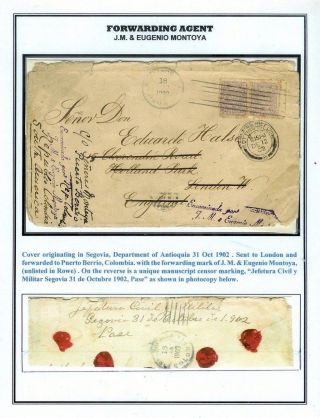 FORWARDING AGENT
J.M. & EUGENIO MONTOYA
18
1902
Señor Don
Edwardo Halse
Holland Park
London W
England
c/o Señores Montoya
Puerto Berrio
Colombia
South America
Encaminada por
J. M. & Eugenio M.
Cover originating in Segovia, Department of Antioquia 31 Oct 1902 . Sent to London and
forwarded to Puerto Berrio, Colombia. with the forwarding mark of J. M. & Eugenio Montoya,
(unlisted in Rowe) . On the reverse is a unique manuscript censor marking, "Jefetura Civil y
Militar Segovia 31 de Octubre 1902, Pase" as shown in photocopy below.
Jefetura Civil y Militar
Segovia 31 de Octubre de 1.902
Pase